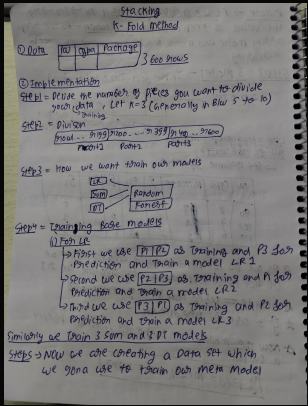 Stacking
K-Fold method
① Data IQ CGPA Package
3 600 rows
② Implementation
Step1 = Devide the number of pieces you want to divide
your data, Let K=3 (Generally in B/w 5 to 10)
training
Step2 = Divison
Part1 Part2 Part3
Step3 = How we want train our models
LR
SVM Random
DT Forest
Step4 = Training Base models
(i) For LR
→ First we use P1 P2 as Training and P3 for
Prediction and train a model LR1
→ Second we use P2 P3 as Training and P1 for
Prediction and train a model LR2
→ Third we use P3 P1 as Training and P2 for
Prediction and Train a model LR3
Similarly we Train 3 SVM and 3 DT models
Step5 → Now we are creating a Data set which
we gona use to train our Meta Model